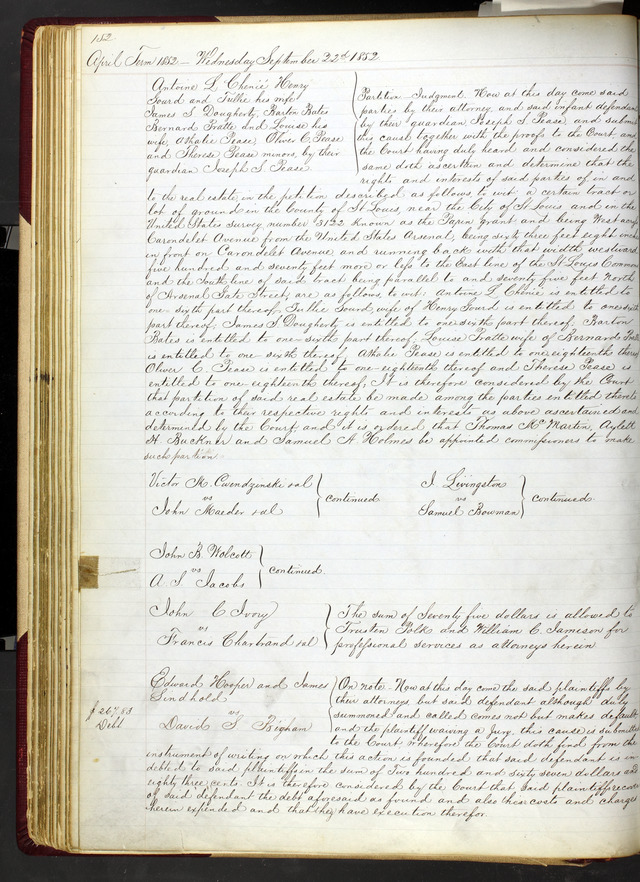 152
April Term 1852 – Wednesday September 22d 1852
Antoine L Chenié Henry
Gourd and Tullie his wife
James S Dougherty, Barton Bates
Bernard Pratte and Louise his
wife, Athalie Pease, Oliver C Pease
and Therése Pease minors, by their
guardian Joseph S Pease
Partition - Judgment. Now at this day come said
parties by their attorney, and said infant defendan
by their guardian Joseph S Pease and submit
this cause together with the proofs to the Court and
the Court having duly heard and considered the
same doth ascertain and determine that the
rights and interests of said parties of in and
to the real estate, in the petition described as follows, to wit a certain tract or
lot of ground in the County of St Louis, near the City of St Louis and in the
United States survey number 3122 known as the Papin grant and being West across
Carondelet Avenue from the United States Arsenal, being sixty three feet eight inches
in front on Carondelet Avenue and running back with that width westward
five hundred and seventy feet more or less to the East line of the St Louis Commons
and the South line of said tract being parallel to and seventy five feet North
of Arsenal Gate Street, are as follows, to wit. Antoine L Chenie is entitled to
one sixth part thereof, Tullie Gourd, wife of Henry Gourd is entitled to one sixth
part thereof, James S Dougherty is entitled to one sixth part thereof, Barton
Bates is entitled to one sixth part thereof, Louise Pratte wife of Bernard Pratte
is entitled to one sixth thereof, Athalie Pease is entitled to one eighteenth thereof
Oliver C. Pease is entitled to one eighteenth thereof and Therése Pease is
entitled to one eighteenth thereof, It is therefore considered by the Court
that partition of said real estate be made among the parties entitled thereto
according to their respective rights and interests as above ascertained and
determined by the Court, and it is ordered that Thomas McMartin, Aylett
H Buckner and Samuel A Holmes be appointed commissioners to make
such partion
Victor M. Cwendzinski et al
vs
John Maeder et al
continued
I Livingston
vs
Samuel Bowman
continued
John B Wolcott
vs
A. S Jacobs
continued
John C Ivory
vs
Francis Chartrand et al
The sum of Seventy five dollars is allowed to
Trusten Polk and William C. Jamison for
professional services as attorneys herein
$267.83
Debt
Edward Hooper and James
Sindhold
vs
David S Bigham
On note - Now at this day come the said plaintiffs by
their attorneys but said defendant although duly
summoned and called comes not but makes default
and the plaintiff waiving a Jury. this cause is submitted
to the Court wherefore the Court doth find from the
instrument of writing on which this action is founded that said defendant is in-
debted to said plaintiffs in the sum of Two hundred and sixty seven dollars and
eighty three cents. It is therefore considered by the Court that said plaintiff recover
of said defendant the debt aforesaid as found and also their costs and charges
herein expended and that they have execution therefor.